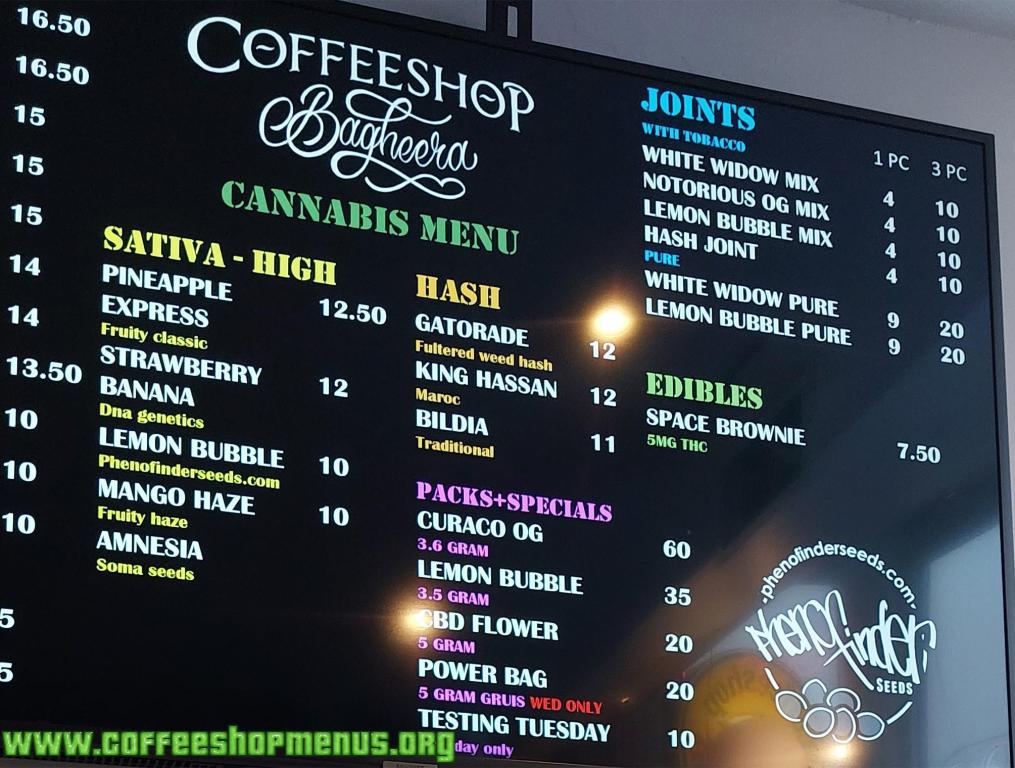 16.50
16.50
15
15
15
14
14
13.50
10
10
10
5
5
COFFEESHOP
Bagheera
CANNABIS MENU
SATIVA - HIGH
PINEAPPLE
EXPRESS 12.50
Fruity classic
STRAWBERRY
BANANA 12
Dna genetics
LEMON BUBBLE 10
Phenofinderseeds.com
MANGO HAZE 10
Fruity haze
AMNESIA
Soma seeds
HASH
GATORADE 12
Fultered weed hash
KING HASSAN 12
Maroc
BILDIA 11
Traditional
PACKS+SPECIALS
CURACO OG 60
3.6 GRAM
LEMON BUBBLE 35
3.5 GRAM
CBD FLOWER 20
5 GRAM
POWER BAG 20
5 GRAM GRUIS WED ONLY
TESTING TUESDAY 10
day only
JOINTS
WITH TOBACCO 1 PC 3 PC
WHITE WIDOW MIX 4 10
NOTORIOUS OG MIX 4 10
LEMON BUBBLE MIX 4 10
HASH JOINT 4 10
PURE
WHITE WIDOW PURE 9 20
LEMON BUBBLE PURE 9 20
EDIBLES
SPACE BROWNIE 7.50
5MG THC
-phenofinderseeds.com-
Phenofinder
SEEDS
www.coffeeshopmenus.org